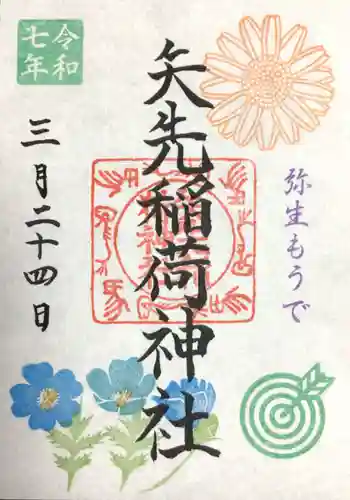 令和
七年
三月二十四日
矢先稲荷神社
弥生もうで